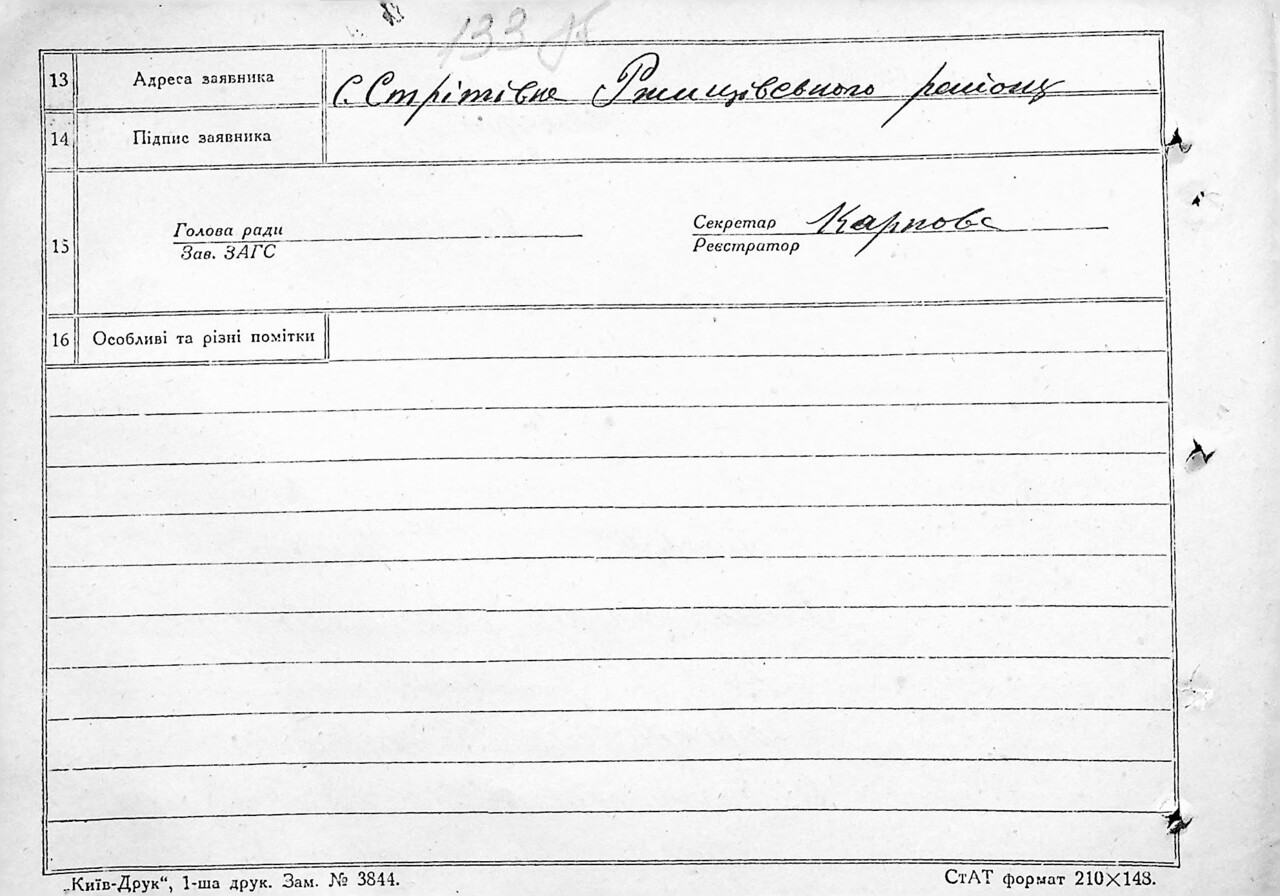 133 зв
13 Адреса заявника С. Стрітівка Ржищівського району
14 Підпис заявника
15 Голова ради Секретар Карпова
Зав. ЗАГС Реєстратор
16 Особливі та різні помітки
„Київ-Друк“, 1-ша друк. Зам. № 3844. СтАТ формат 210×148.